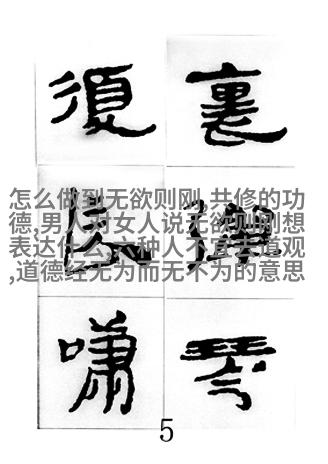 裏彈琴
復長嘯
怎么做到无欲则刚,共修的功
德,男人对女人说无欲则刚想
表达什么,六种人不宜去道观
,道德经无为而无不为的意思
5